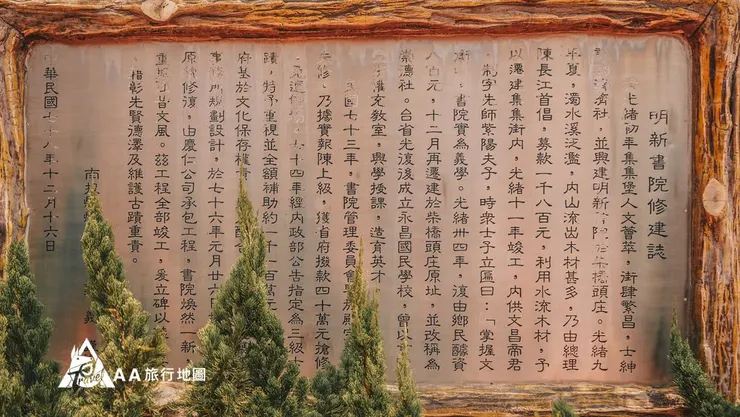 明新書院修建誌
光緒初年集集堡人文薈萃,街肆繁昌,士紳
濟社,並興建明新書院在柴橋頭庄。光緒九
年夏,濁水溪泛濫,內山流出木材甚多,乃由總理
陳長江首倡,募款一千八百元,利用水流木材,予
以遷建集集街內,光緒十一年竣工,內供文昌帝君
、制字先師紫陽夫子,時衆士子立匾曰:「掌握文
衡」,書院實為義學。光緒卅四年,復由鄉民醵資
八百元,十二月再遷建於柴橋頭庄原址,並改稱為
崇德社。台省光復後成立永昌國民學校,曾以
擴充教室,興學授課,造育英才
民國七十三年,書院管理委員會
修,乃據實報陳上級,獲省府撥款四十萬元搶修
七十四年經內政部公告指定為三級
蹟,特予重視並全額補助約一千一百萬元
府基於文化保存權責
事務所規劃設計,於七十六年元月廿
原修復,由慶仁公司承包工程,書院煥然一新,
重振昔日文風。茲工程全部竣工,爰立碑以
楷彰先賢德澤及維護古蹟重責。
南投
中華民國七十八年十二月十六日
AA旅行地圖